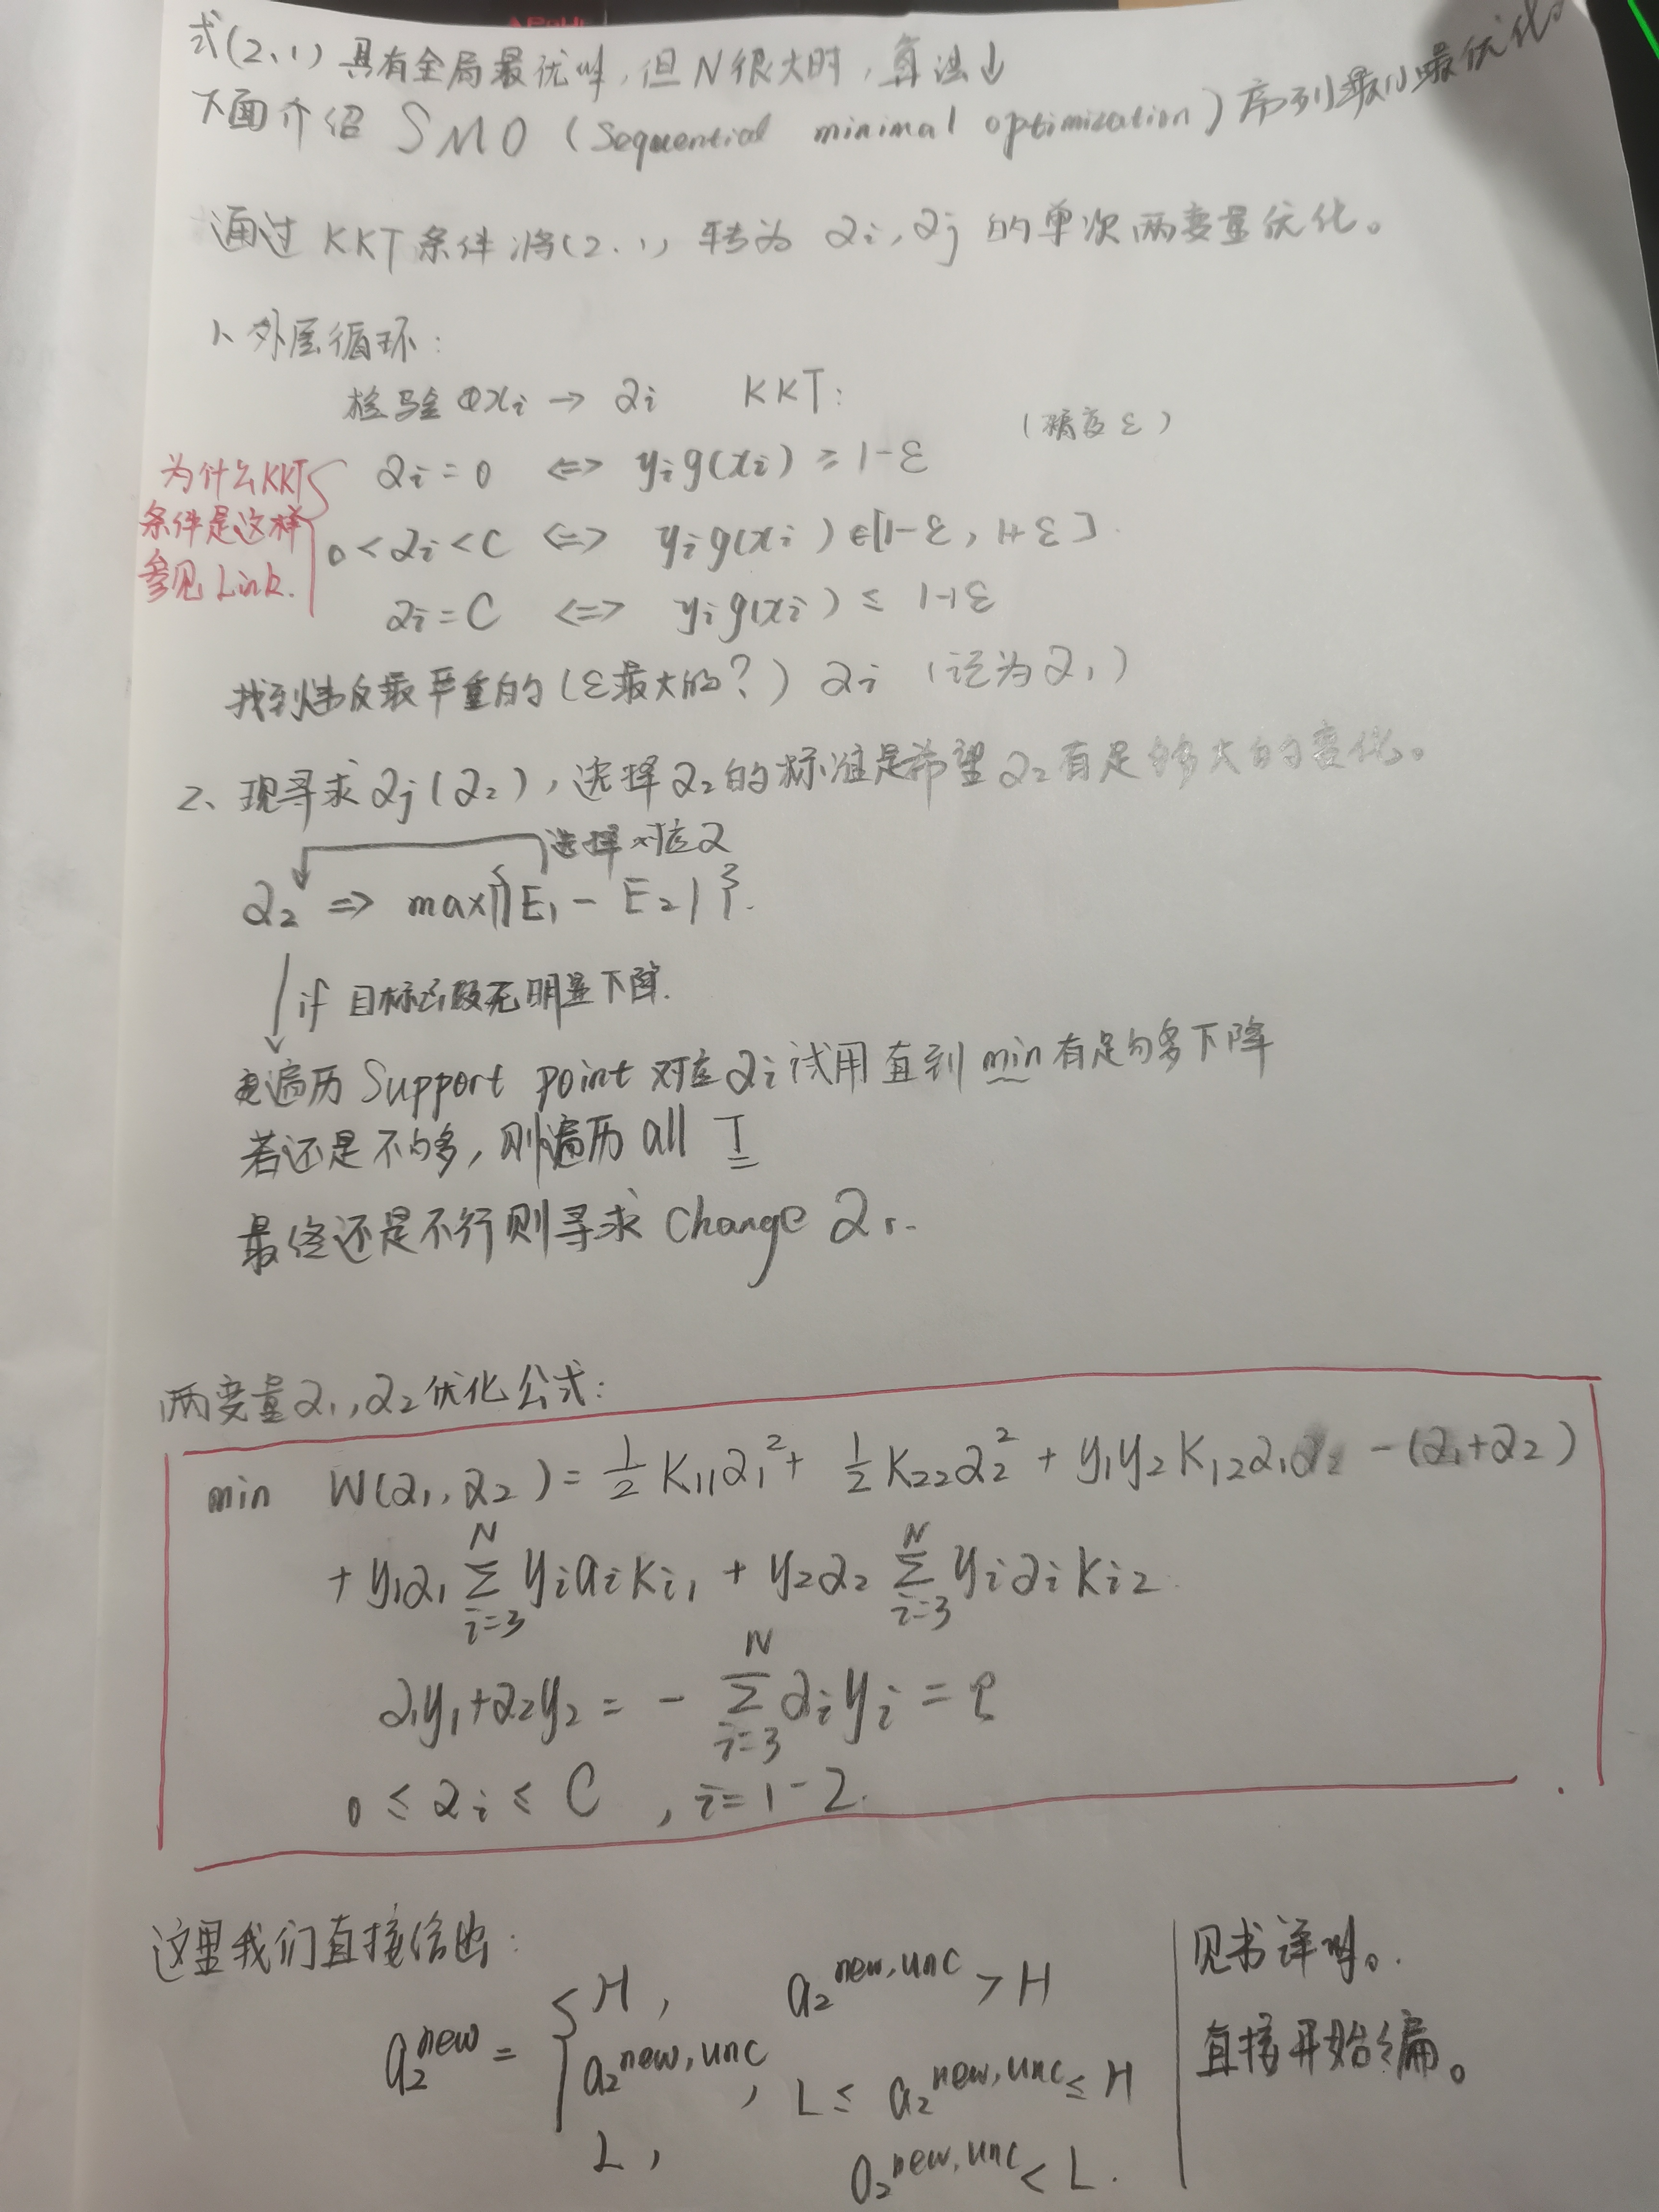 式(2.1)具有全局最优性,但N很大时,算法↓
下面介绍 SMO (Sequential minimal optimization) 序列最小最优化。
通过 KKT 条件将(2.1)转为 αi,αj 的单次两变量优化。
1、外层循环:
检验 xi → αi KKT:
(精度 ε)
为什么KKT
条件是这样
参见 Link.
αi = 0 <=> yi g(xi) ≥ 1-ε
0 < αi < C <=> yi g(xi) ∈[1-ε, 1+ε].
αi = C <=> yi g(xi) ≤ 1+ε
找到违反最严重的(ε最大的?) αi (记为α1)
2、现寻求αj(α2),选择α2的标准是希望α2有足够大的变化。
选择对应α
α2 => max{|E1 - E2|}.
if 目标函数无明显下降.
遍历 Support point 对应αi试用直到min有足够多下降
若还是不够多,则遍历 all T
最终还是不行则寻求 change α1.
两变量α1,α2优化公式:
min W(α1,α2) = 1/2 K11α1² + 1/2 K22α2² + y1y2K12α1α2 - (α1+α2)
+ y1α1 ∑_{i=3}^{N} yi ai Ki1 + y2α2 ∑_{i=3}^{N} yi αi Ki2
α1y1+α2y2 = - ∑_{i=3}^{N} αi yi = ρ
0 ≤ αi ≤ C , i=1-2.
这里我们直接给出:
a2^{new} = { H, a2^{new,unc} > H
a2^{new,unc}, L ≤ a2^{new,unc} ≤ H
L, a2^{new,unc} < L.
见书详明。
直接开始编。